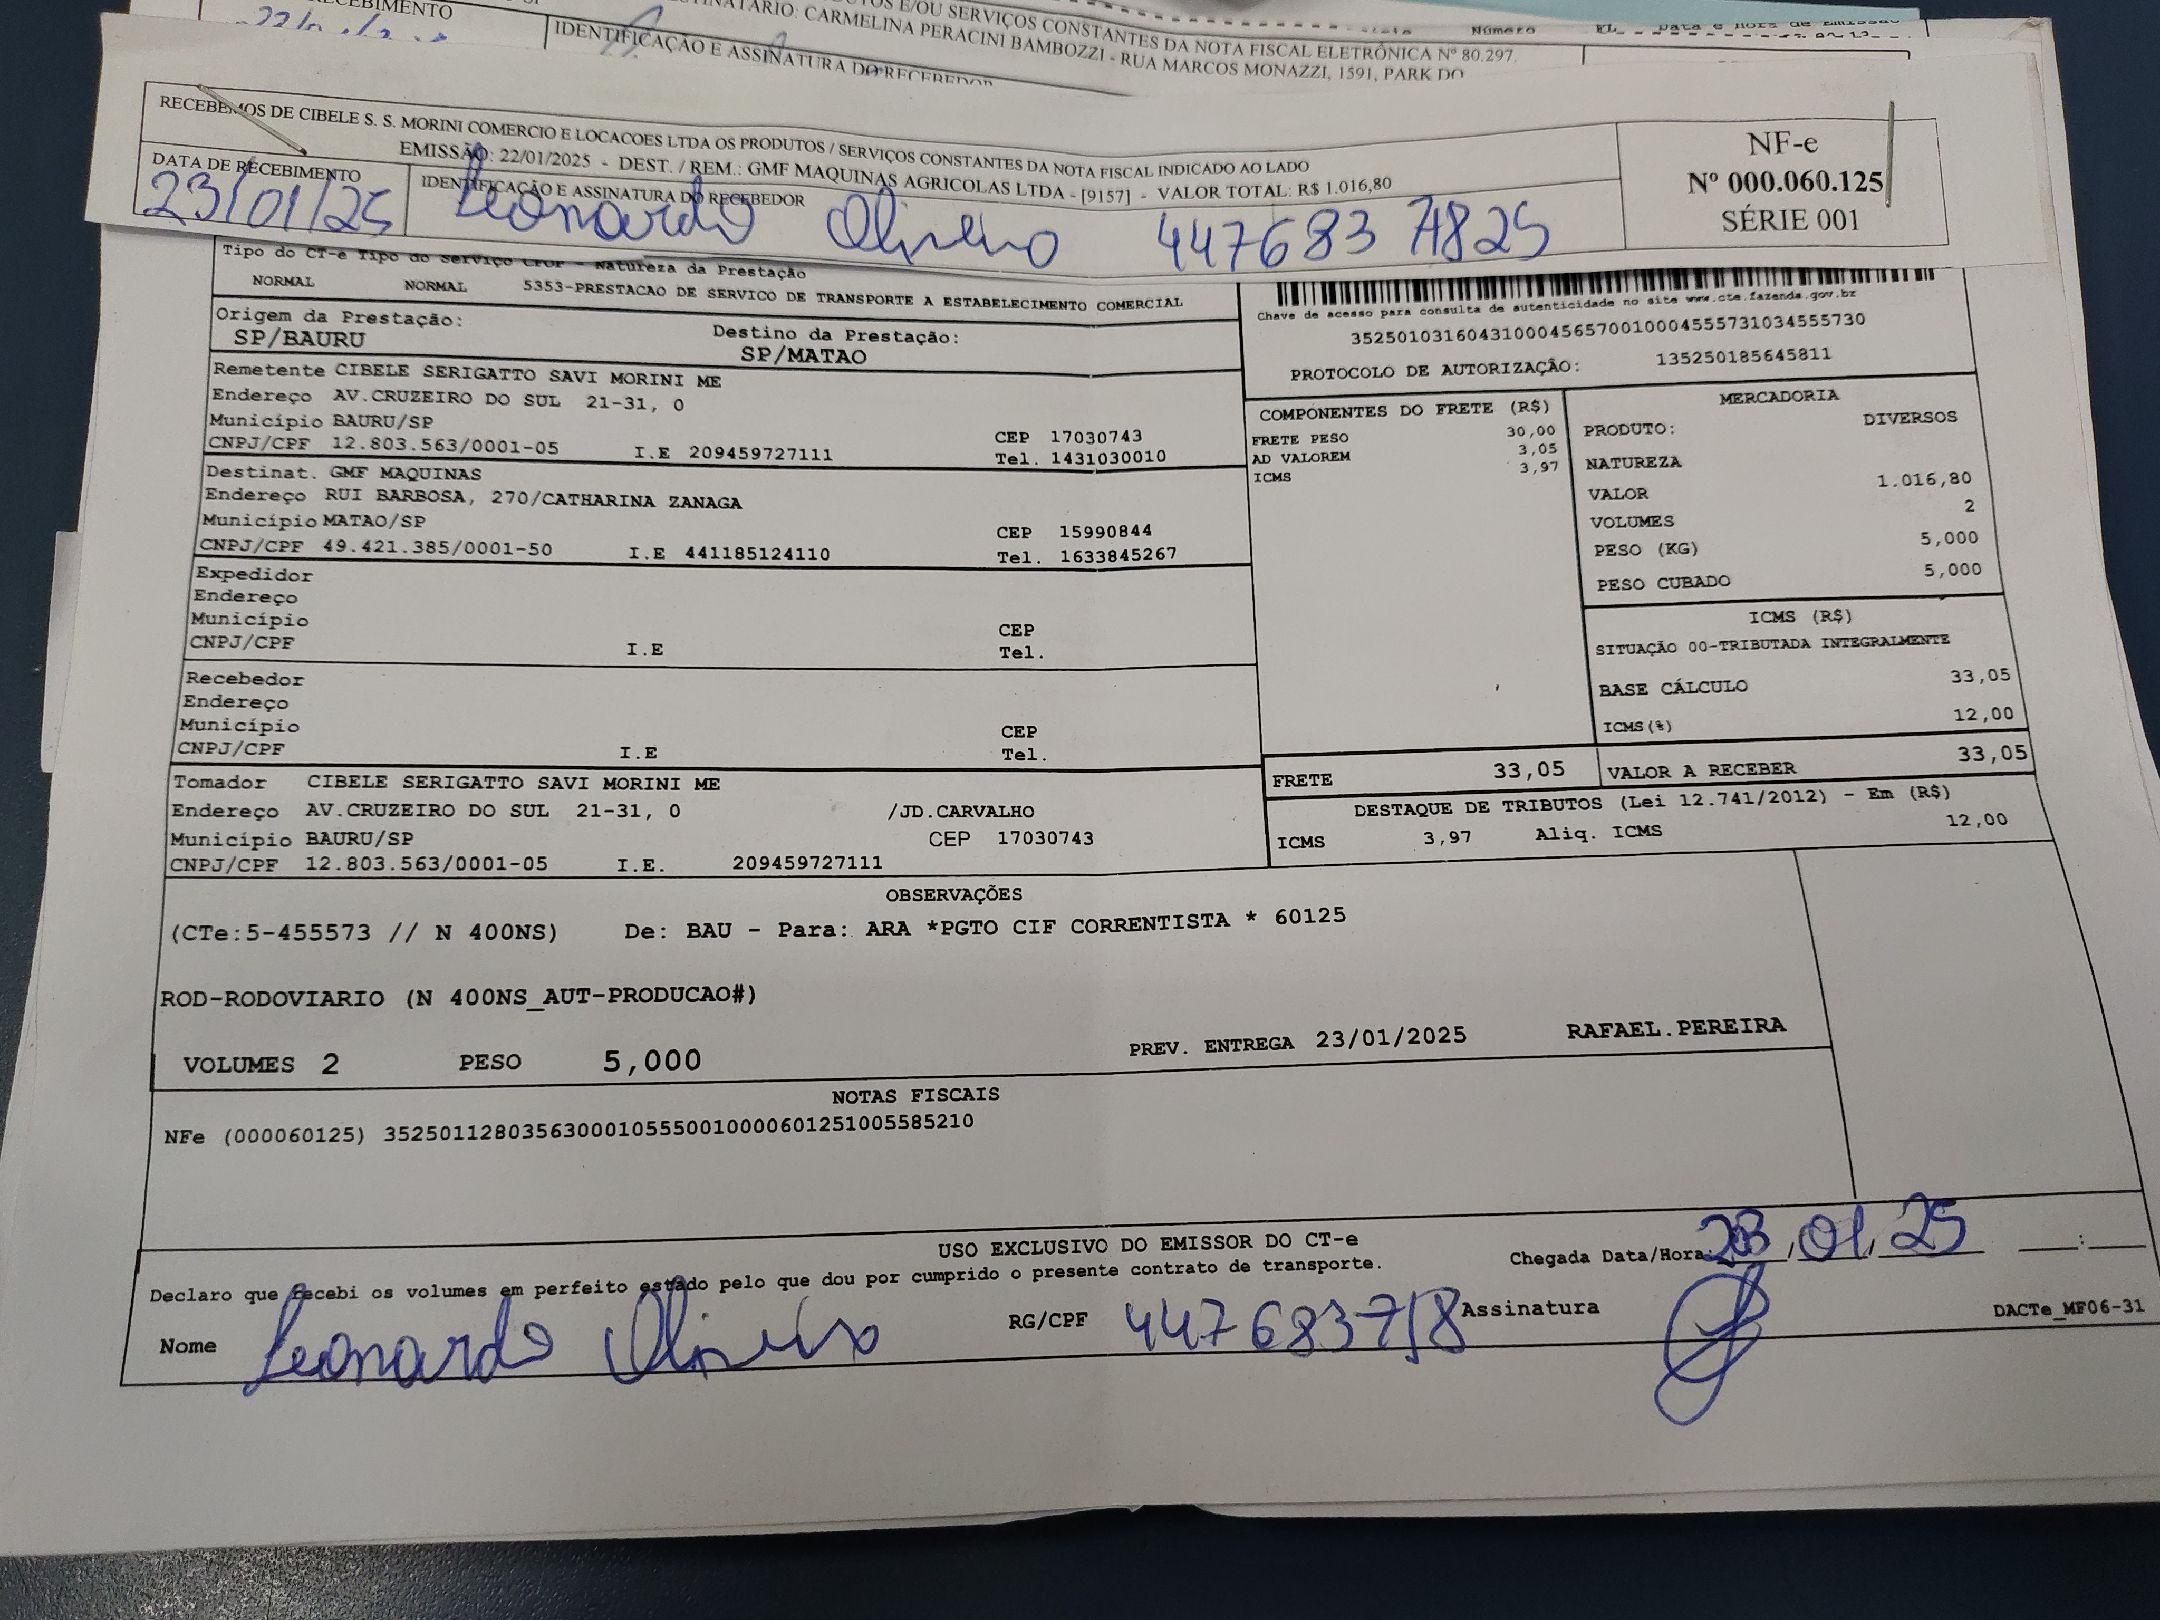 RECEBIMENTO
IDENTIFICAÇÃO E ASSINATURA DO RECEBEDOR
E/OU SERVIÇOS CONSTANTES DA NOTA FISCAL ELETRÔNICA Nº 80.297.
CARMELINA PERACINI BAMBOZZI - RUA MARCOS MONAZZI, 1591, PARK DO
Número
RECEBEMOS DE CIBELE S. S. MORINI COMERCIO E LOCACOES LTDA OS PRODUTOS / SERVIÇOS CONSTANTES DA NOTA FISCAL INDICADO AO LADO
EMISSÃO: 22/01/2025 - DEST. / REM.: GMF MAQUINAS AGRICOLAS LTDA - [9157] - VALOR TOTAL: R$ 1.016,80
DATA DE RECEBIMENTO
23/01/25
IDENTIFICAÇÃO E ASSINATURA DO RECEBEDOR
Leonardo
NF-e
Nº 000.060.125
SÉRIE 001
Tipo do CT-e Tipo do Serviço CFOP - Natureza da Prestação
NORMAL NORMAL 5353-PRESTACAO DE SERVICO DE TRANSPORTE A ESTABELECIMENTO COMERCIAL
Origem da Prestação: Destino da Prestação:
SP/BAURU SP/MATAO
Chave de acesso para consulta de autenticidade no site www.cte.fazenda.gov.br
PROTOCOLO DE AUTORIZAÇÃO: 135250185645811
Remetente CIBELE SERIGATTO SAVI MORINI ME
Endereço AV.CRUZEIRO DO SUL 21-31, 0
Município BAURU/SP CEP 17030743
CNPJ/CPF 12.803.563/0001-05 I.E 209459727111 Tel. 1431030010
Destinat. GMF MAQUINAS
Endereço RUI BARBOSA, 270/CATHARINA ZANAGA
Município MATAO/SP CEP 15990844
CNPJ/CPF 49.421.385/0001-50 I.E 441185124110 Tel. 1633845267
Expedidor
Endereço
Município CEP
CNPJ/CPF I.E Tel.
Recebedor
Endereço
Município CEP
CNPJ/CPF I.E Tel.
Tomador CIBELE SERIGATTO SAVI MORINI ME
Endereço AV.CRUZEIRO DO SUL 21-31, 0 /JD.CARVALHO
Município BAURU/SP CEP 17030743
CNPJ/CPF 12.803.563/0001-05 I.E. 209459727111
COMPONENTES DO FRETE (R$)
FRETE PESO 30,00
AD VALOREM 3,05
ICMS 3,97
MERCADORIA
PRODUTO: DIVERSOS
NATUREZA
VALOR 1.016,80
VOLUMES 2
PESO (KG) 5,000
PESO CUBADO 5,000
ICMS (R$)
SITUAÇÃO 00-TRIBUTADA INTEGRALMENTE
BASE CÁLCULO 33,05
ICMS(%) 12,00
FRETE 33,05 VALOR A RECEBER 33,05
DESTAQUE DE TRIBUTOS (Lei 12.741/2012) - Em (R$)
ICMS 3,97 Aliq. ICMS 12,00
OBSERVAÇÕES
(CTe:5-455573 // N 400NS) De: BAU - Para: ARA *PGTO CIF CORRENTISTA * 60125
ROD-RODOVIARIO (N 400NS_AUT-PRODUCAO#)
VOLUMES 2 PESO 5,000 PREV. ENTREGA 23/01/2025 RAFAEL.PEREIRA
NOTAS FISCAIS
NFe (000060125) 35250112803563000105550010000601251005585210
USO EXCLUSIVO DO EMISSOR DO CT-e
Declaro que recebi os volumes em perfeito estado pelo que dou por cumprido o presente contrato de transporte.
Chegada Data/Hora: 23/01/25 :
Nome Leonardo RG/CPF Assinatura
DACTe_MF06-31